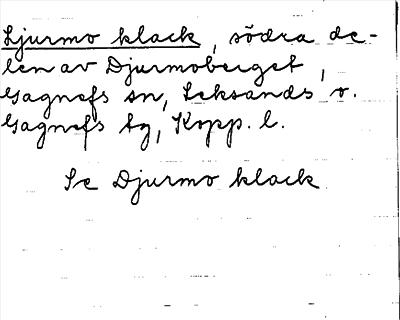 Ljurmo klack, södra de-
len av Djurmoberget,
Gagnefs sn, Leksands o.
Gagnefs tg, Kopp. l.
Se Djurmo klack